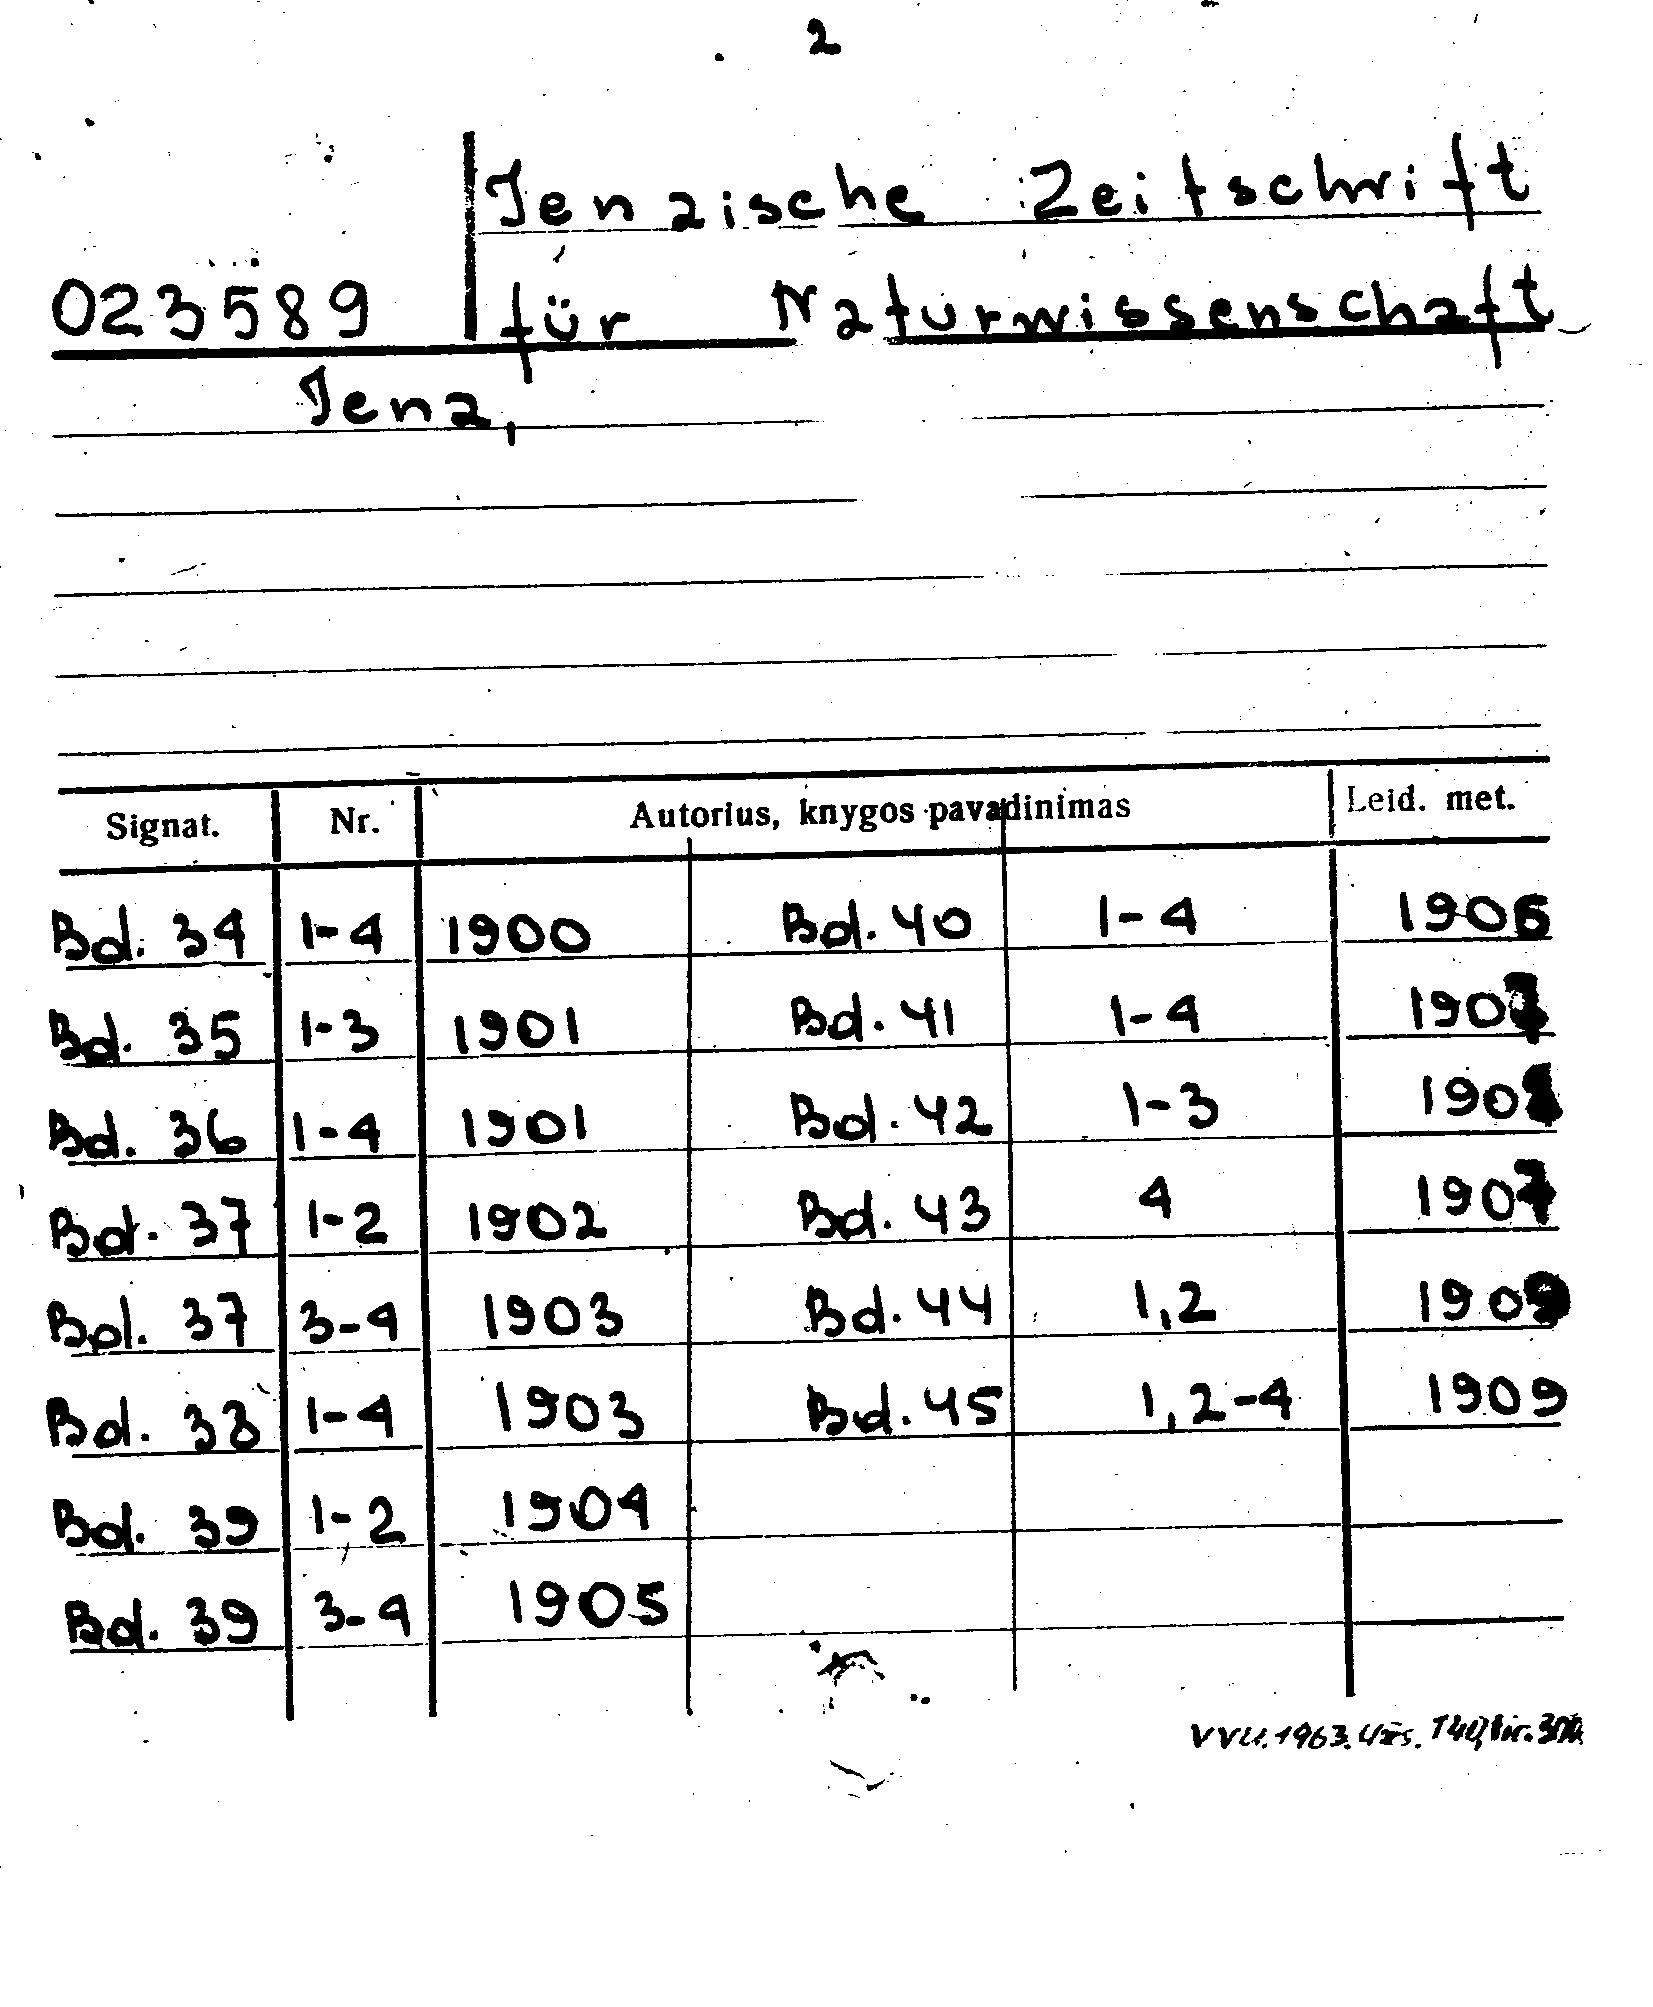 2
Jenaische Zeitschrift
023589 für Naturwissenschaft
Jena,
Signat. Nr. Autorius, knygos pavadinimas Leid. met.
Bd. 34 1-4 1900 Bd. 40 1-4 1906
Bd. 35 1-3 1901 Bd. 41 1-4
Bd. 36 1-4 1901 Bd. 42 1-3
Bd. 37 1-2 1902 Bd. 43 4 1907
Bd. 37 3-4 1903 Bd. 44 1,2 1909
Bd. 38 1-4 1903 Bd. 45 1,2-4 1909
Bd. 39 1-2 1904
Bd. 39 3-4 1905
VVU. 1963. Užs.